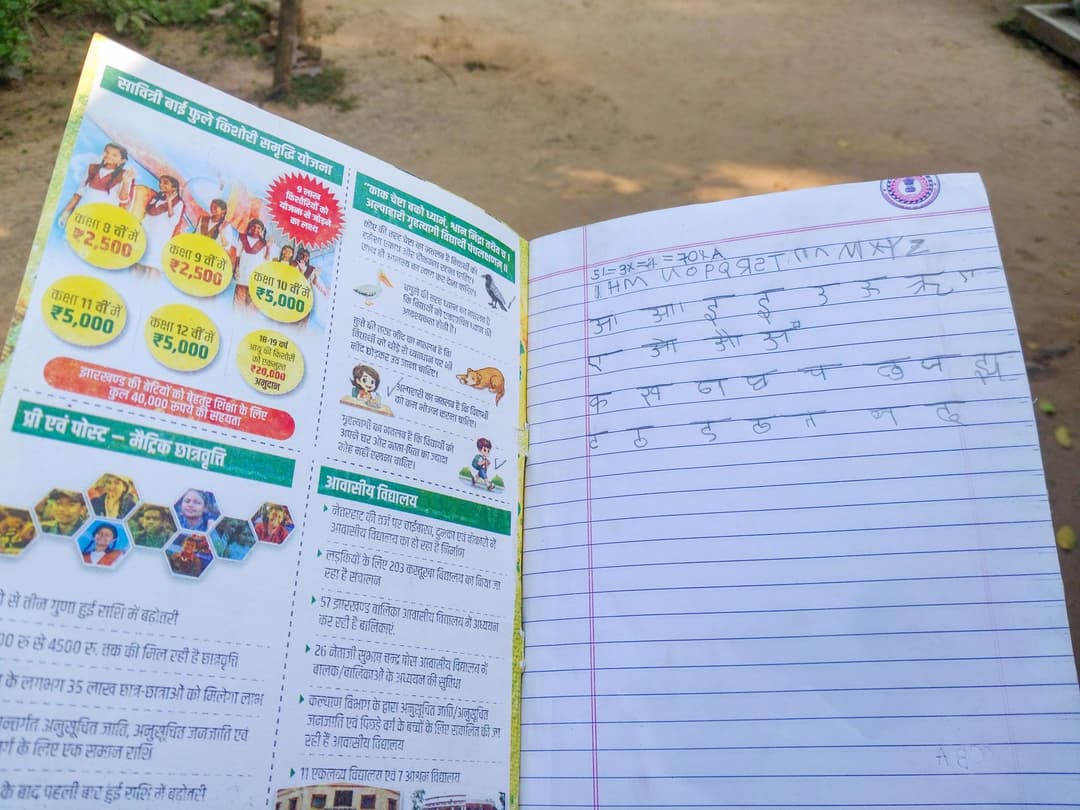 सावित्री बाई फुले किशोरी समृद्धि योजना
9 लाख
किशोरियों को
योजना से जोड़ने
का लक्ष्य
कक्षा 8 वीं में
₹2,500
कक्षा 9 वीं में
₹2,500
कक्षा 10 वीं में
₹5,000
कक्षा 11 वीं में
₹5,000
कक्षा 12 वीं में
₹5,000
18-19 वर्ष
आयु की किशोरी
को एकमुश्त
₹20,000
अनुदान
झारखण्ड की बेटियों को बेहतर शिक्षा के लिए
कुल 40,000 रूपये की सहयता
प्री एवं पोस्ट – मैट्रिक छात्रवृत्ति
से तीन गुणा हुई राशि में बढ़ोतरी
00 रु से 4500 रु. तक की मिल रही है छात्रवृत्ति
के लगभग 35 लाख छात्र-छात्राओं को मिलेगा लाभ
अनुसूचित जाति, अनुसूचित जनजाति एवं
के लिए एक समान राशि
के बाद पहली बार हुई राशि में बढ़ोतरी
"काक चेष्टा बको ध्यानं, श्वान निद्रा तथैव च ।
अल्पाहारी गृहत्यागी विद्यार्थी पंचलक्षणम् ॥
कौए की तरह चेष्टा का मतलब है विद्यार्थी को
बगुले की तरह ध्यान का मतलब है
कि विद्यार्थी को एकाग्रचित्त ध्यान की
आवश्यकता होती है।
कुत्ते की तरह नींद का मतलब है कि
विद्यार्थी को थोड़े से व्यवधान पर भी
नींद छोड़कर उठ जाना चाहिए।
अल्पाहारी का मतलब है कि विद्यार्थी
को कम भोजन करना चाहिए।
गृहत्यागी का मतलब है कि विद्यार्थी को
अपने घर और माता-पिता का ज्यादा
मोह नहीं रखना चाहिए।
आवासीय विद्यालय
नेतरहाट की तर्ज पर चाईबासा, दुमका एवं बोकारो में
आवासीय विद्यालय का हो रहा है निर्माण
लड़कियों के लिए 203 कस्तूरबा विद्यालय का किया जा
रहा है संचालन
57 झारखण्ड बालिका आवासीय विद्यालय में अध्ययन
कर रही है बालिकाएं
26 नेताजी सुभाष चन्द्र बोस आवासीय विद्यालय में
बालक/बालिकाओं के अध्ययन की सुविधा
कल्याण विभाग के द्वारा अनुसूचित जाति/अनुसूचित
जनजाति एवं पिछड़े वर्ग के बच्चों के लिए संचालित की जा
रही है आवासीय विद्यालय
11 एकलव्य विद्यालय एवं 7 आश्रम विद्यालय
अ आ इ ई उ ऊ ऋ
ए ओ औ अं
क च छ ज झ
ट ठ ड ढ त थ द